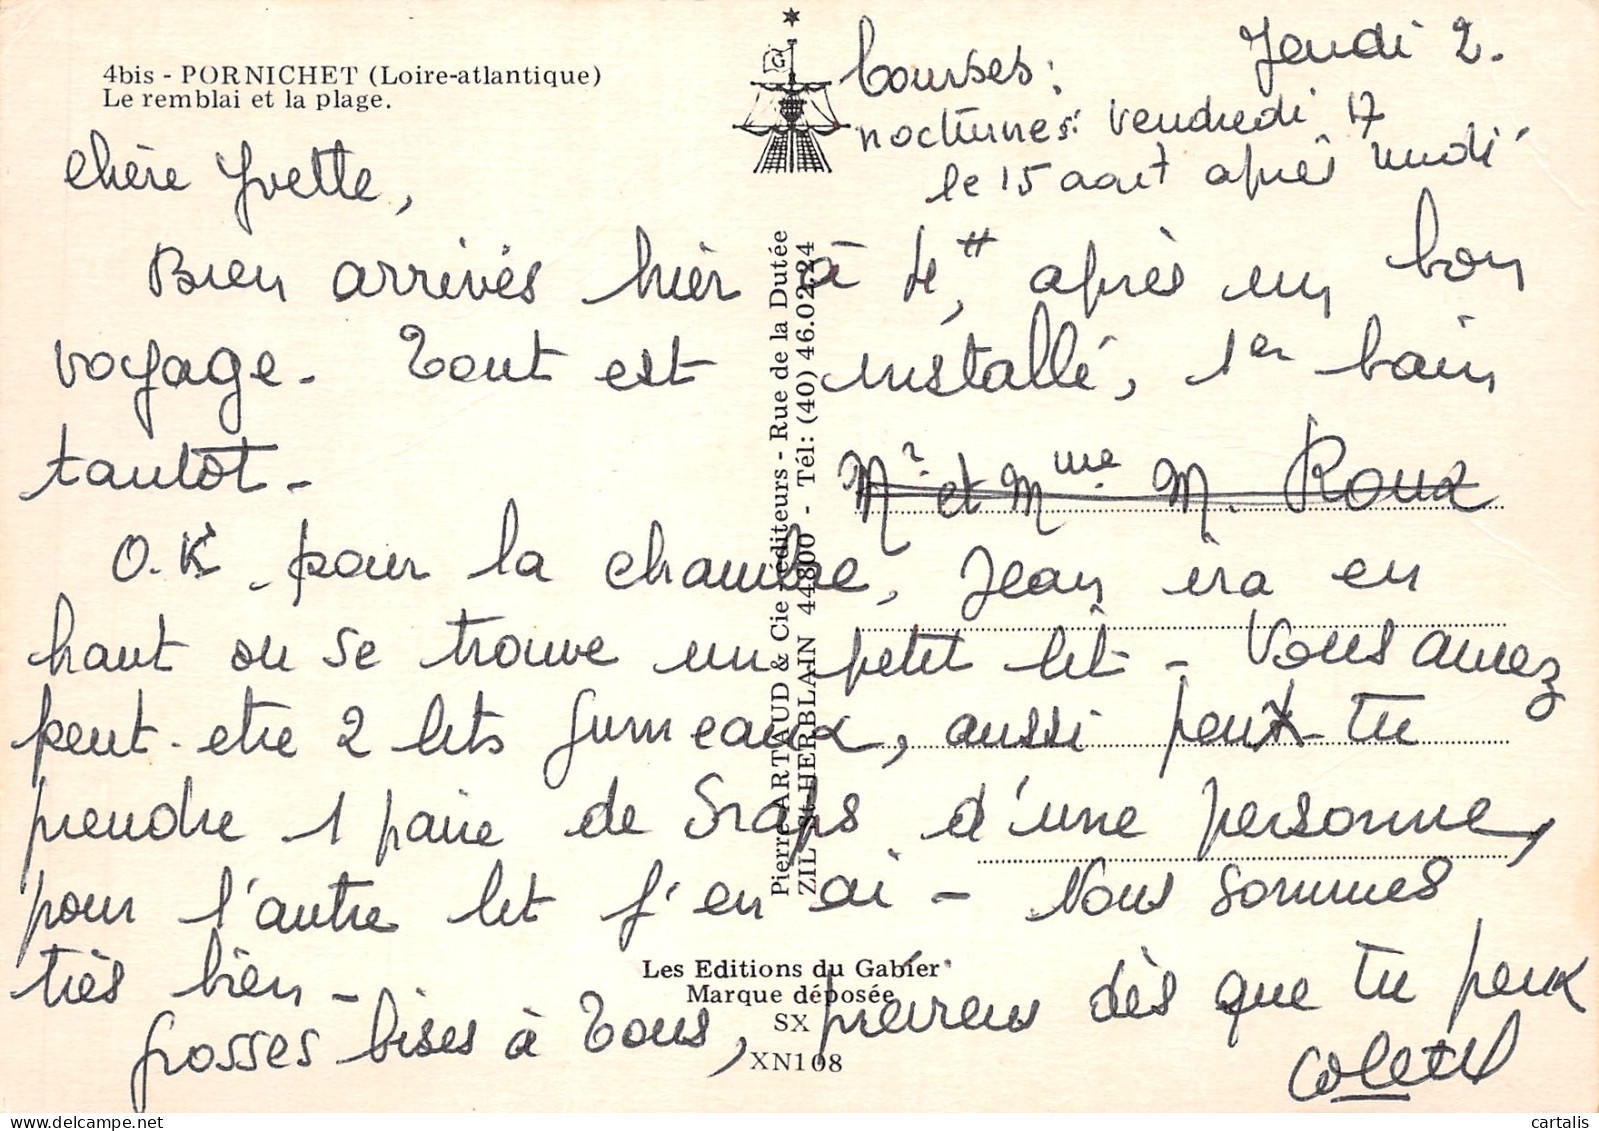 4bis - PORNICHET (Loire-atlantique)
Le remblai et la plage.
Jeudi 2.
Courses:
nocturnes: vendredi 17
le 15 aout après midi
chère Yvette,
Bien arrivés hier à 4H, après un bon
voyage. Tout est installé, 1er bain
tantôt -
Mr et Mme M. Roux
O.K. pour la chambre, Jean ira en
haut ou se trouve un petit lit - Vous aurez
peut-etre 2 lits jumeaux, aussi peux-tu
prendre 1 paire de draps d'une personne,
pour l'autre lit j'en ai - Nous sommes
très bien -
Grosses bises à Tous, préviens dès que tu peux
Colette
Pierre ARTAUD & Cie éditeurs - Rue de la Dutée
ZIL St-HERBLAIN 44800 - Tél: (40) 46.02.24
Les Editions du Gabier
Marque déposée
SX
XN108
G
cartalis